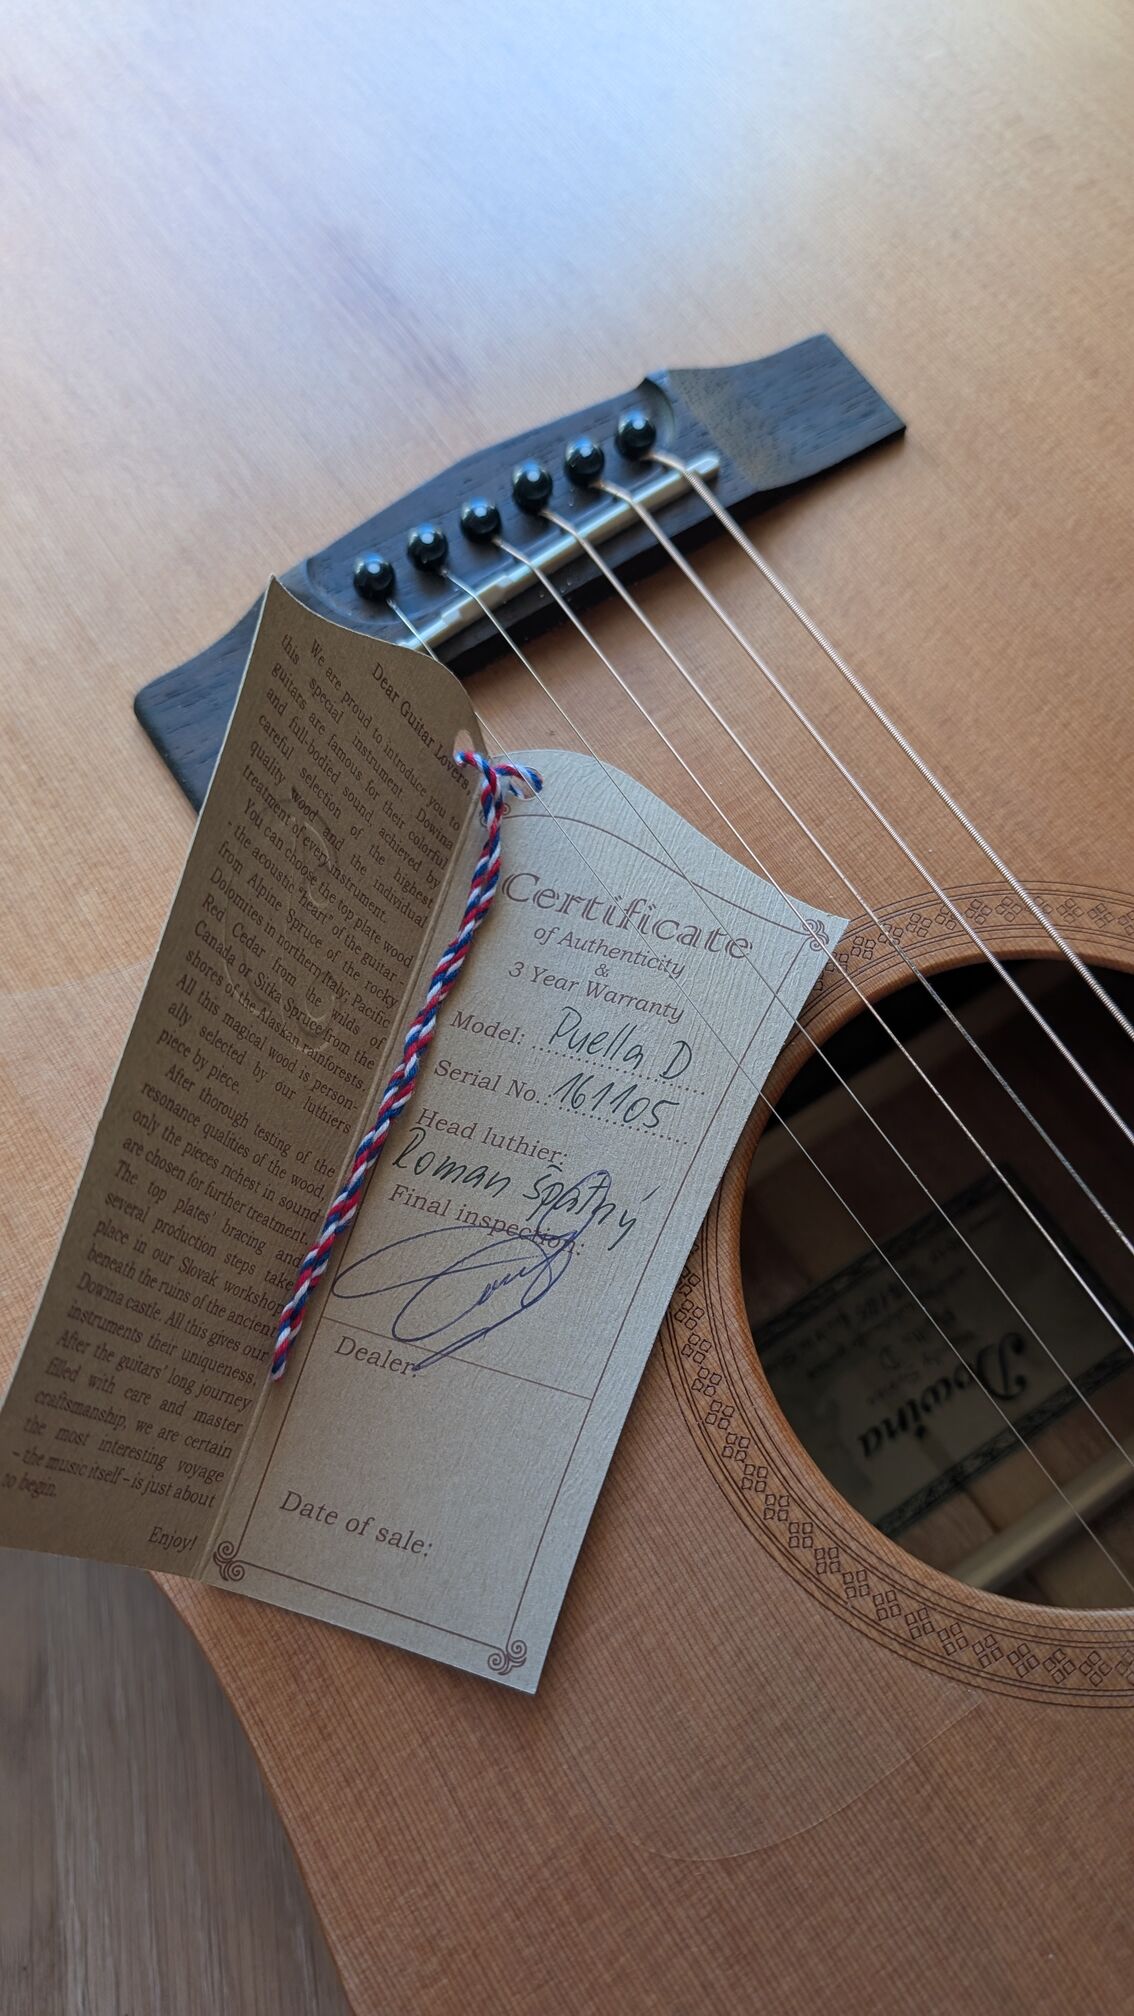 Dear Guitar Lovers,
We are proud to introduce you to
this special instrument. Dowina
guitars are famous for their colorful
and full-bodied sound, achieved by
careful selection of the highest
quality wood and the individual
treatment of every instrument.
You can choose the top plate wood
- the acoustic "heart" of the guitar -
from Alpine Spruce of the rocky
Dolomites in northern Italy; Pacific
Red Cedar from the wilds of
Canada or Sitka Spruce from the
shores of the Alaskan rainforests.
All this magical wood is person-
ally selected by our luthiers
piece by piece.
After thorough testing of the
resonance qualities of the wood,
only the pieces richest in sound
are chosen for further treatment.
The top plates' bracing and
several production steps take
place in our Slovak workshop
beneath the ruins of the ancient
Dowina castle. All this gives our
instruments their uniqueness.
After the guitars' long journey
filled with care and master
craftsmanship, we are certain
the most interesting voyage
– the music itself – is just about
to begin.
Enjoy!
Certificate
of Authenticity
&
3 Year Warranty
Model: Puella D
Serial No.: 161105
Head luthier:
Roman Špátny
Final inspection:
Dealer:
Date of sale:
Dowina